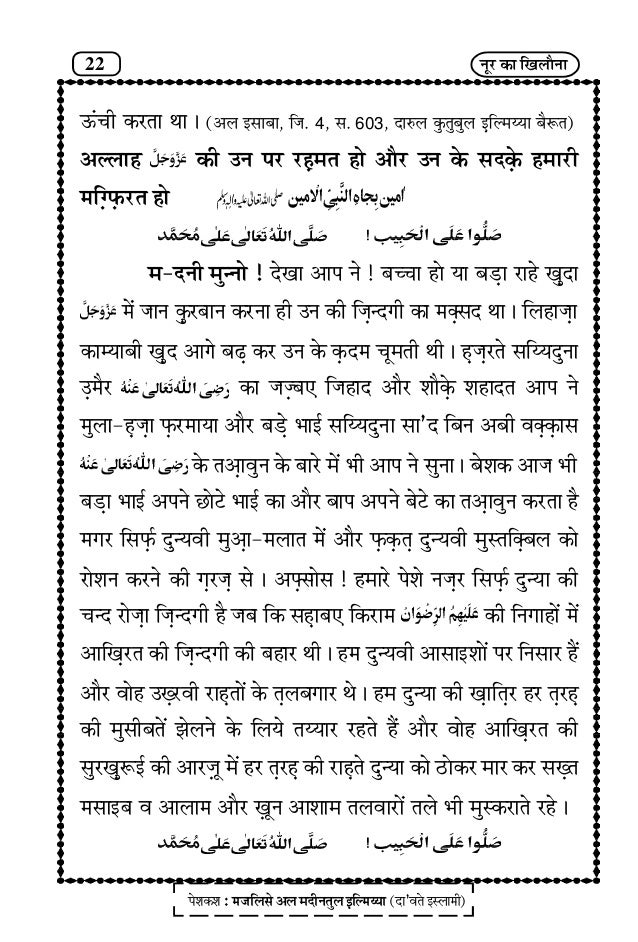 22
नूर का खिलौना
ऊंची करता था । (अल इसाबा, जि. 4, स. 603, दारुल कुतुबुल इल्मिय्या बैरूत)
अल्लाह عَزَّوَجَلَّ की उन पर रह़मत हो और उन के सदक़े हमारी
मग़्फ़िरत हो اٰمِين بِجَاهِ النَّبِيِّ الْاَمين صلی اللہ تعالٰی علیہ واٰلہٖ وسلم
صَلُّوا عَلَى الْحَبِيب ! صَلَّى اللهُ تَعَالٰى عَلٰى مُحَمَّد
म-दनी मुन्नो ! देखा आप ने ! बच्चा हो या बड़ा राहे ख़ुदा
عَزَّوَجَلَّ में जान क़ुरबान करना ही उन की ज़िन्दगी का मक़्सद था । लिहाज़ा
काम्याबी ख़ुद आगे बढ़ कर उन के क़दम चूमती थी । ह़ज़रते सय्यिदुना
उ़मैर رَضِىَ اللهُ تَعَالٰى عَنْهُ का जज़्बए जिहाद और शौक़े शहादत आप ने
मुला-ह़ज़ा फ़रमाया और बड़े भाई सय्यिदुना सा'द बिन अबी वक़्क़ास
رَضِىَ اللهُ تَعَالٰى عَنْهُ के तआ़वुन के बारे में भी आप ने सुना । बेशक आज भी
बड़ा भाई अपने छोटे भाई का और बाप अपने बेटे का तआ़वुन करता है
मगर सिर्फ़ दुन्यवी मुआ़-मलात में और फ़क़त़ दुन्यवी मुस्तक़्बिल को
रोशन करने की ग़रज़ से । अफ़्सोस ! हमारे पेशे नज़र सिर्फ़ दुन्या की
चन्द रोज़ा ज़िन्दगी है जब कि सह़ाबए किराम عَلَيْهِمُ الرِّضْوَان की निगाहों में
आख़िरत की ज़िन्दगी की बहार थी । हम दुन्यवी आसाइशों पर निसार हैं
और वोह उख़्रवी राह़तों के त़लबगार थे । हम दुन्या की ख़ात़िर हर त़रह़
की मुसीबतें झेलने के लिये तय्यार रहते हैं और वोह आख़िरत की
सुरख़ुरूई की आरज़ू में हर त़रह़ की राह़ते दुन्या को ठोकर मार कर सख़्त
मसाइब व आलाम और ख़ून आशाम तलवारों तले भी मुस्कराते रहे ।
صَلُّوا عَلَى الْحَبِيب ! صَلَّى اللهُ تَعَالٰى عَلٰى مُحَمَّد
पेशकश : मजलिसे अल मदीनतुल इल्मिय्या (दा'वते इस्लामी)